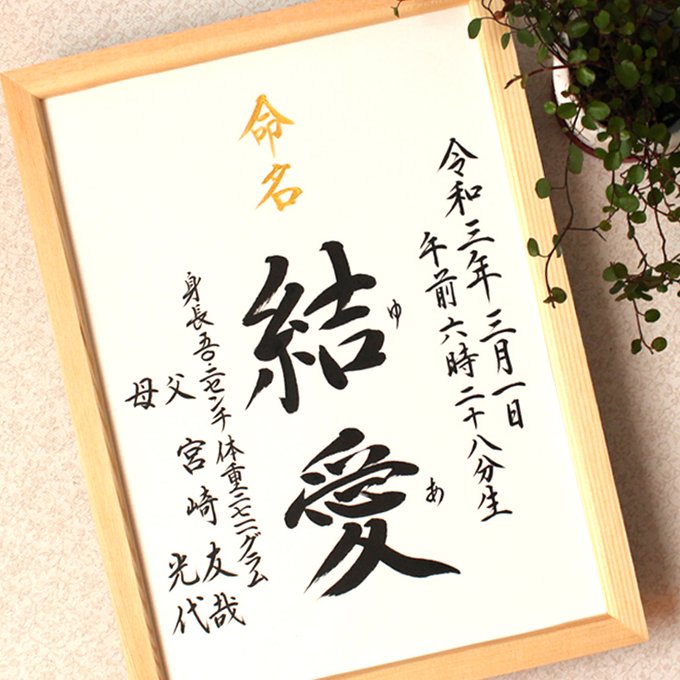 命名
令和三年三月一日
午前六時二十八分生
結愛
ゆ
あ
身長吾二センチ 体重二七二一グラム
父 宮崎 友哉
母 光代